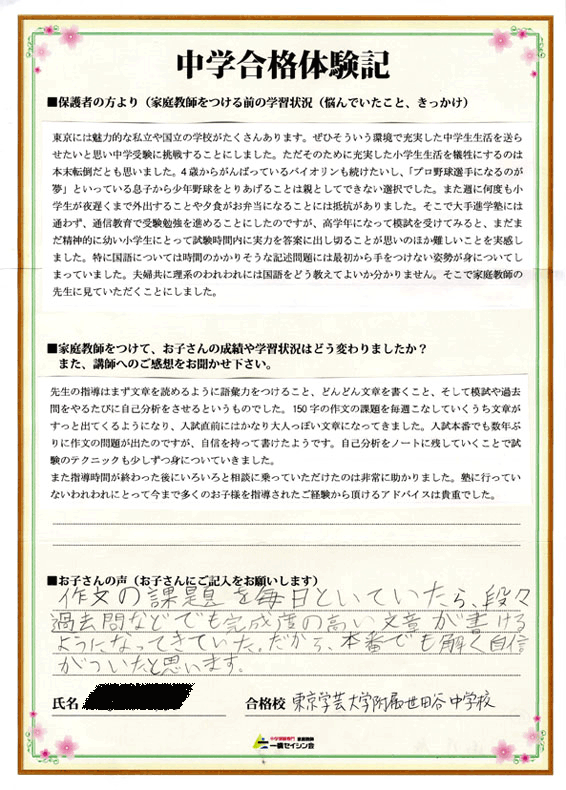 中学合格体験記
■保護者の方より（家庭教師をつける前の学習状況（悩んでいたこと、きっかけ）
東京には魅力的な私立や国立の学校がたくさんあります。ぜひそういう環境で充実した中学生生活を送ら
せたいと思い中学受験に挑戦することにしました。ただそのために充実した小学生生活を犠牲にするのは
本末転倒だとも思いました。4歳からがんばっているバイオリンも続けたいし、「プロ野球選手になるのが
夢」といっている息子から少年野球をとりあげることは親としてできない選択でした。また週に何度も小
学生が夜遅くまで外出することや夕食がお弁当になることには抵抗がありました。そこで大手進学塾には
通わず、通信教育で受験勉強を進めることにしたのですが、高学年になって模試を受けてみると、まだま
だ精神的に幼い小学生にとって試験時間内に実力を答案に出し切ることが思いのほか難しいことを実感し
ました。特に国語については時間のかかりそうな記述問題には最初から手をつけない姿勢が身についてし
まっていました。夫婦共に理系のわれわれには国語をどう教えてよいか分かりません。そこで家庭教師の
先生に見ていただくことにしました。
■家庭教師をつけて、お子さんの成績や学習状況はどう変わりましたか？
また、講師へのご感想をお聞かせ下さい。
先生の指導はまず文章を読めるように語彙力をつけること、どんどん文章を書くこと、そして模試や過去
問をやるたびに自己分析をさせるというものでした。150字の作文の課題を毎週こなしていくうち文章が
すっと出てくるようになり、入試直前にはかなり大人っぽい文章になってきました。入試本番でも数年ぶ
りに作文の問題が出たのですが、自信を持って書けたようです。自己分析をノートに残していくことで試
験のテクニックも少しずつ身についていきました。
また指導時間が終わった後にいろいろと相談に乗っていただけたのは非常に助かりました。塾に行ってい
ないわれわれにとって今まで多くのお子様を指導されたご経験から頂けるアドバイスは貴重でした。
■お子さんの声（お子さんにご記入をお願いします）
作文の課題を毎日といていたら、段々
過去問などでも完成度の高い文章が書ける
ようになってきていた。だから、本番でも解く自信
がついたと思います。
氏名 合格校 東京学芸大学附属世田谷中学校
中学受験専門 家庭教師
一橋セイシン会